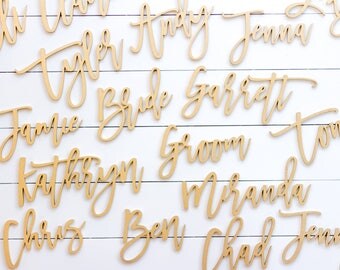 Andy Jenna
Tyler
Jamie Bride Garrett
Kathryn Groom
Miranda
Chris Ben Chad